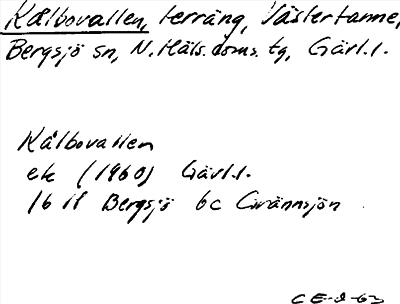 Kælbovallen, terräng, Västertanne,
Bergsjö sn, N. Häls. doms. tg, Gävl. l.
Kålbovallen
ek (1960) Gävl. l.
16 H Bergsjö 6c
CE-9-63